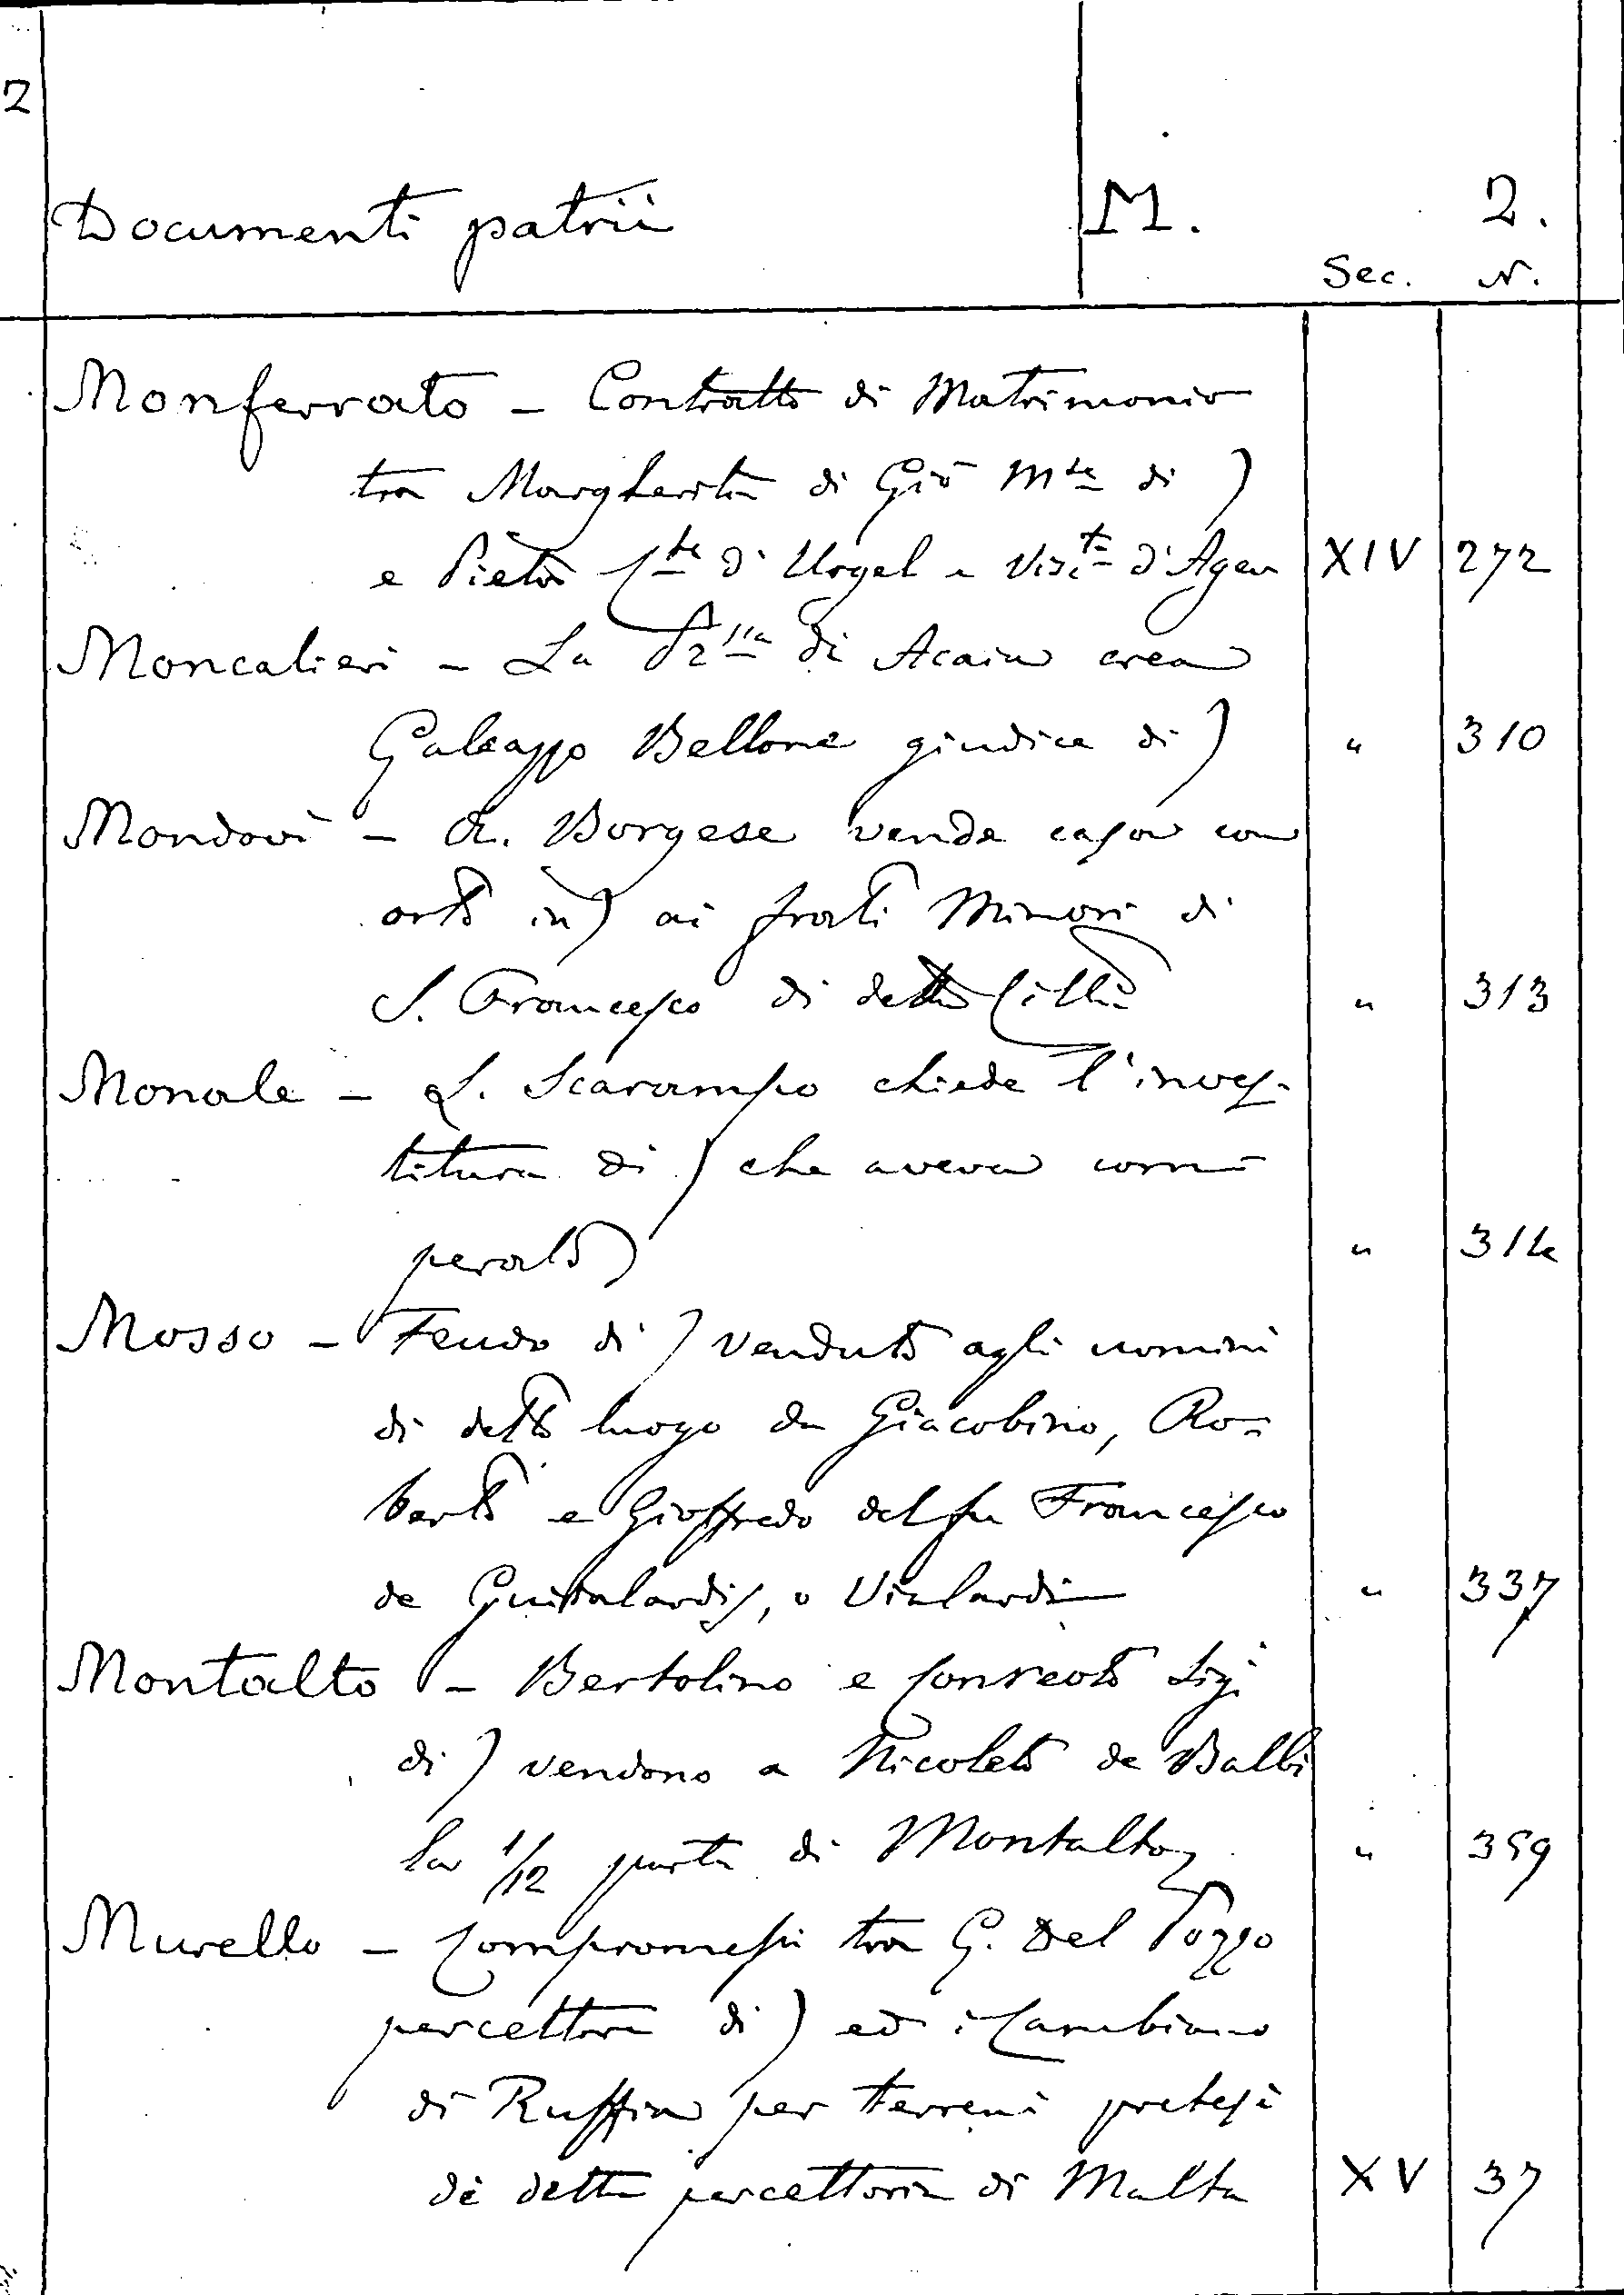 2
Documenti patrii M. 2.
Sec. N.
Monferrato - Contratto di Matrimonio
tra Margherita di Giō M.se di )
e Pietro C.te d'Urgel e Vis.te d'Agen XIV 272
Moncalieri - La P.ssa di Acaia crea
Galeazzo Bellone giudice di ) " 310
Mondovì - A. Borgese vende casa con
orto in ) ai frati Minori di
S. Francesco di detta Città " 313
Monale - L. Scarampo chiede l'inves-
titura di ) che aveva com-
perato " 314
Mosso - Feudo di ) venduto agli uomini
di detto luogo da Giacobino, Ro-
berto e Gioffredo del fu Francesco
de Guidalardis, o Vialardi " 337
Montalto - Bertolino e Consorto
di ) vendono a Nicoleto de Balbi
la 1/12 parte di Montalto " 359
Murello - Compromessi tra G. Del Pozzo
percettore di ) ed i Cambiano
di Ruffia per terreni pretesi
di detta percettoria di Malta XV 37